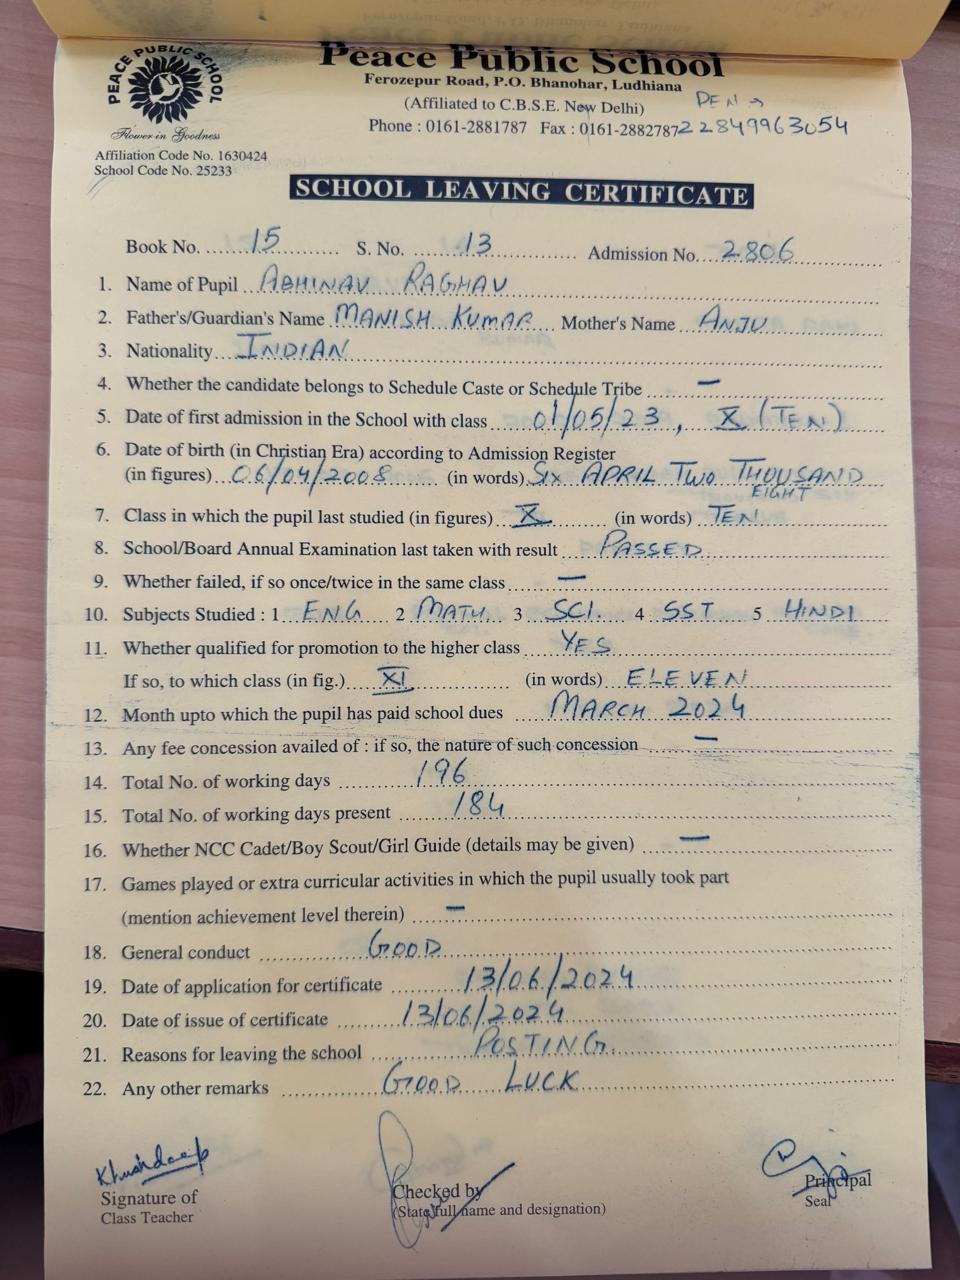 PEACE PUBLIC SCHOOL
Flower in Goodness
Peace Public School
Ferozepur Road, P.O. Bhanohar, Ludhiana
(Affiliated to C.B.S.E. New Delhi)
PEN →
Phone : 0161-2881787 Fax : 0161-2882787 22849963054
Affiliation Code No. 1630424
School Code No. 25233
SCHOOL LEAVING CERTIFICATE
Book No. 15 S. No. 13 Admission No. 2806
1. Name of Pupil ABHINAV RAGHAV
2. Father's/Guardian's Name MANISH KUMAR Mother's Name ANJU
3. Nationality INDIAN
4. Whether the candidate belongs to Schedule Caste or Schedule Tribe —
5. Date of first admission in the School with class 01/05/23, X (TEN)
6. Date of birth (in Christian Era) according to Admission Register
(in figures) 06/04/2008 (in words) SIX APRIL TWO THOUSAND
EIGHT
7. Class in which the pupil last studied (in figures) X (in words) TEN
8. School/Board Annual Examination last taken with result PASSED
9. Whether failed, if so once/twice in the same class —
10. Subjects Studied : 1 ENG 2 MATH 3 SCI. 4 SST 5 HINDI
11. Whether qualified for promotion to the higher class YES
If so, to which class (in fig.) XI (in words) ELEVEN
12. Month upto which the pupil has paid school dues MARCH 2024
13. Any fee concession availed of : if so, the nature of such concession —
14. Total No. of working days 196
15. Total No. of working days present 184
16. Whether NCC Cadet/Boy Scout/Girl Guide (details may be given) —
17. Games played or extra curricular activities in which the pupil usually took part
(mention achievement level therein) —
18. General conduct GOOD
19. Date of application for certificate 13/06/2024
20. Date of issue of certificate 13/06/2024
21. Reasons for leaving the school POSTING
22. Any other remarks GOOD LUCK
Khushdeep
Signature of
Class Teacher
Checked by
(State full name and designation)
Principal
Seal